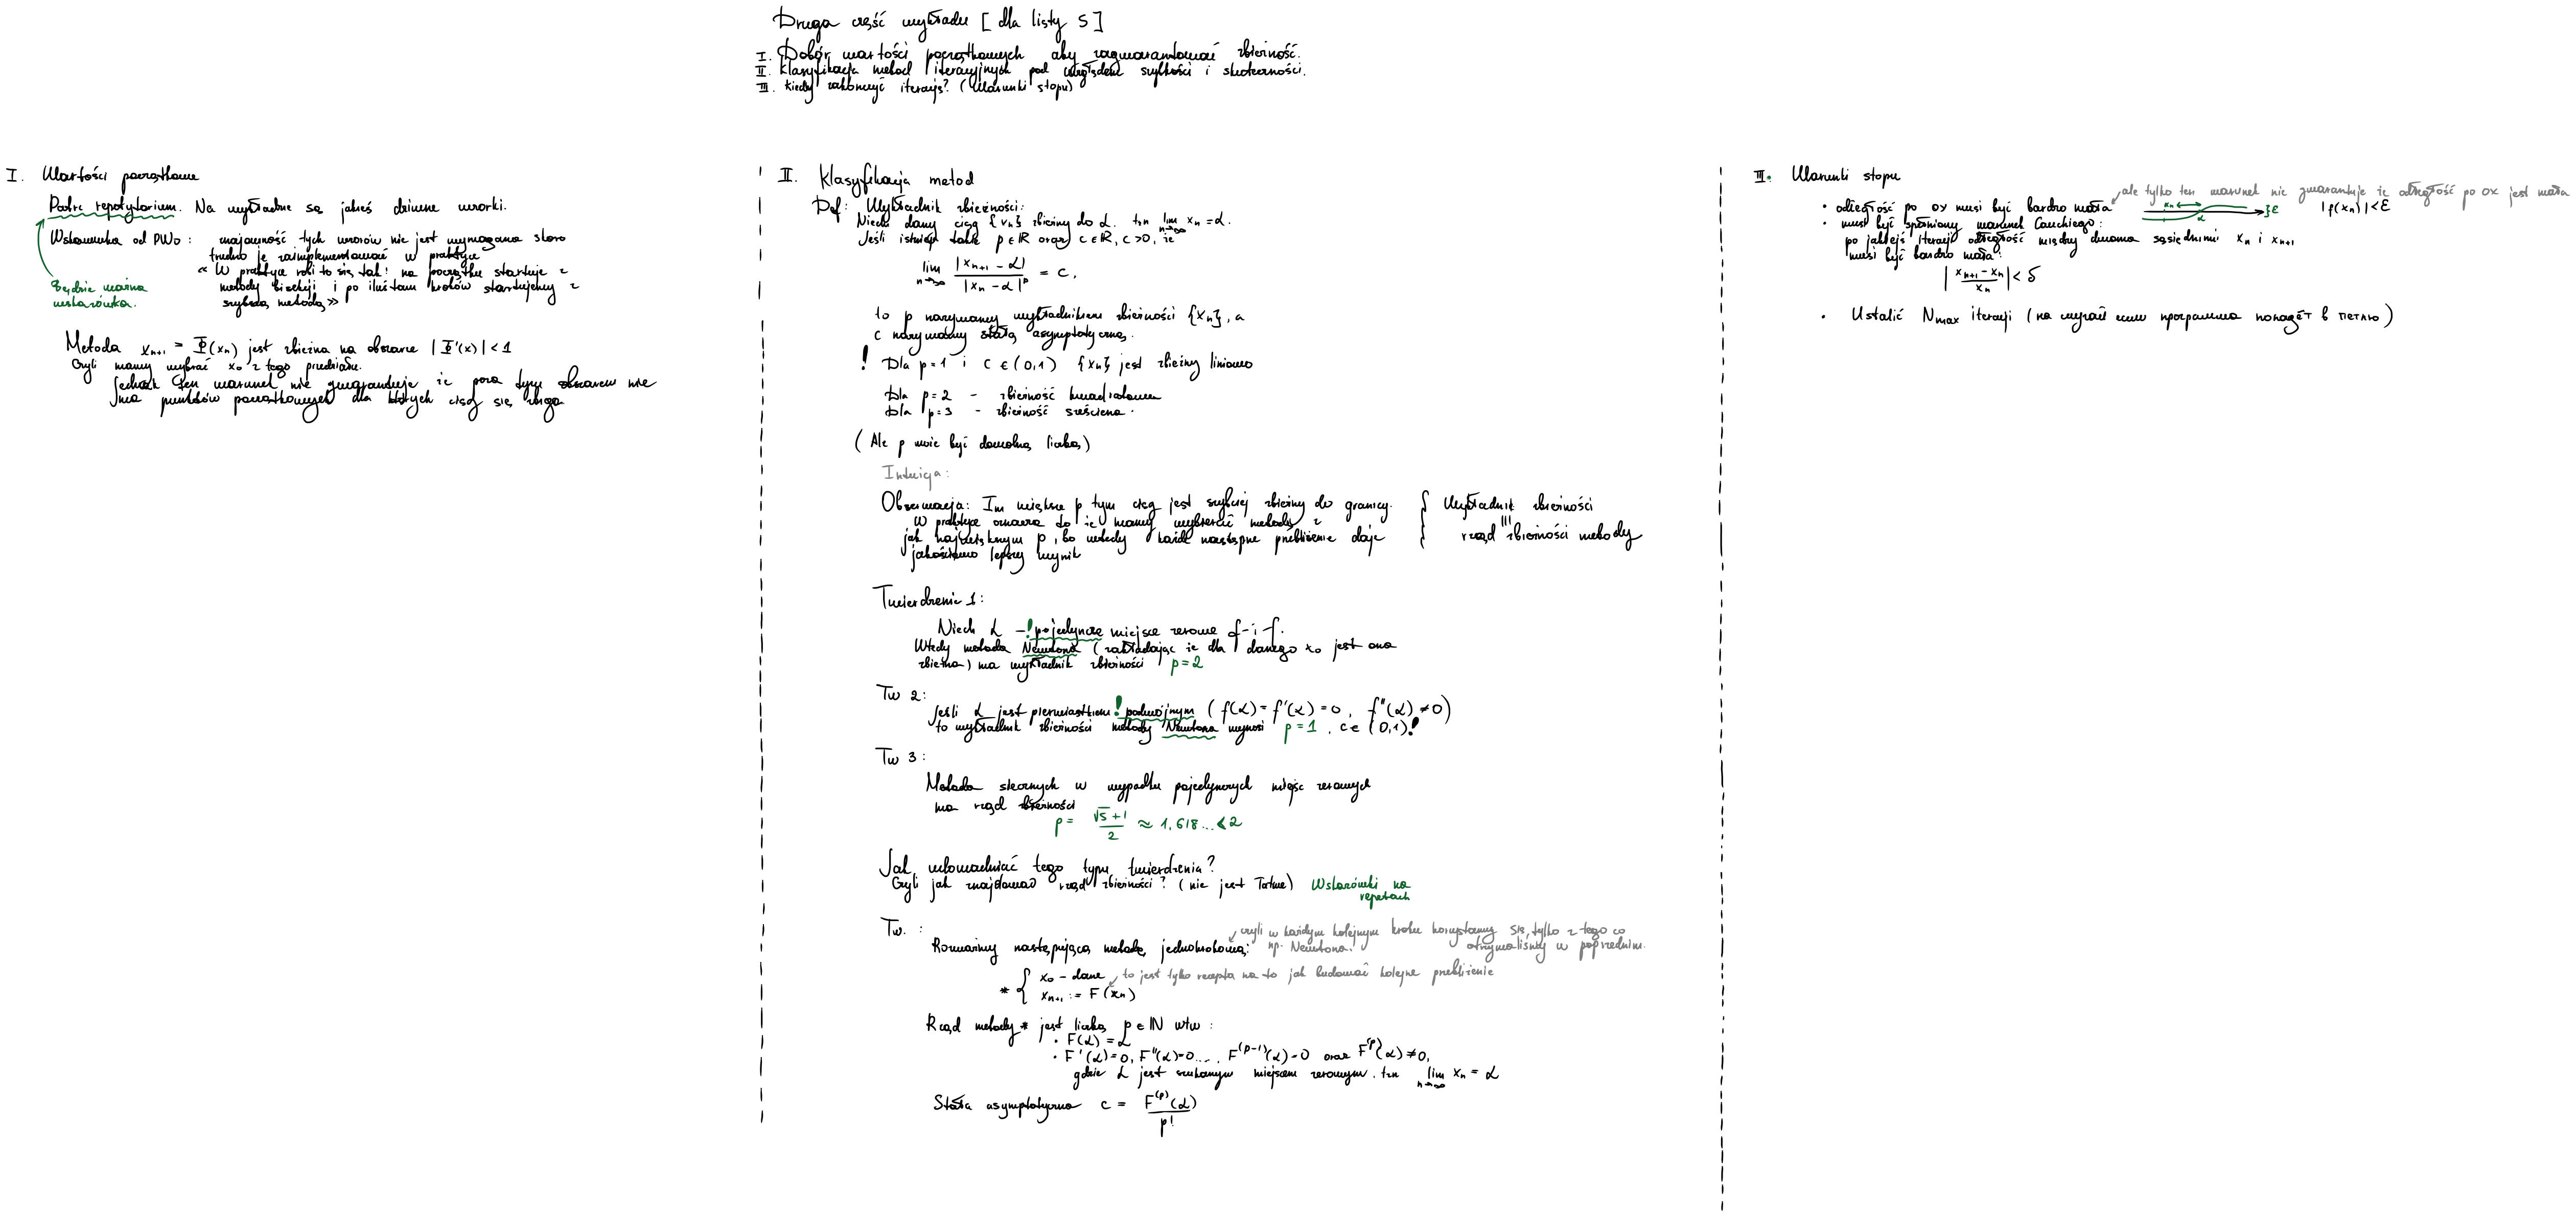 Druga część wykładu [ dla listy 5 ]
I. Dobór wartości początkowych aby zagwarantować zbieżność.
II. Klasyfikacja metod iteracyjnych pod względem szybkości i skuteczności.
III. Kiedy zakończyć iterację? (Warunki stopu)
I. Wartości początkowe
Patrz repetytorium. Na wykładzie są jakieś dziwne wzorki.
Wskazówka od PWo: znajomość tych wzorów nie jest wymagana skoro
trudno je zaimplementować w praktyce
« W praktyce robi to się tak: na początku startuje z
metody bisekcji i po ilustam kroków startujemy z
szybszą metodą »
Będzie ważna
wskazówka.
Metoda x_{n+1} = Φ(x_n) jest zbieżna na obszarze |Φ'(x)| < 1
Czyli mamy wybrać x_0 z tego przedziału.
Jednak ten warunek nie gwarantuje że poza tym obszarem nie
ma punktów początkowych dla których ciąg się zbiega
II. Klasyfikacja metod
Def: Wykładnik zbieżności:
Niech dany ciąg {x_n} zbieżny do α. tzn lim_{n→∞} x_n = α.
Jeśli istnieją takie p ∈ ℝ oraz c ∈ ℝ, c > 0, że
lim_{n→∞} |x_{n+1} - α| / |x_n - α|^p = c,
to p nazywamy wykładnikiem zbieżności {x_n}, a
c nazywamy stałą asymptotyczną.
! Dla p = 1 i c ∈ (0,1) {x_n} jest zbieżny liniowo
Dla p = 2 - zbieżność kwadratowa
Dla p = 3 - zbieżność sześcienna.
(Ale p może być dowolną liczbą)
Intuicja:
Obserwacja: Im większe p tym ciąg jest szybciej zbieżny do granicy.
W praktyce oznacza to że mamy wybierać metodę z
jak największym p, bo wtedy każde następne przybliżenie daje
jakościowo lepszy wynik
Wykładnik zbieżności
|||
rząd zbieżności metody
Twierdzenie 1:
Niech α - ! pojedyncze miejsce zerowe f-i f.
Wtedy metoda Newtona (zakładając że dla danego x_0 jest ona
zbieżna) ma wykładnik zbieżności p = 2
Tw 2:
Jeśli α jest pierwiastkiem ! podwójnym (f(α) = f'(α) = 0, f''(α) ≠ 0)
to wykładnik zbieżności metody Newtona wynosi p = 1, c ∈ (0,1)!
Tw 3:
Metoda siecznych w wypadku pojedynczych miejsc zerowych
ma rząd zbieżności
p = (√5 + 1)/2 ≈ 1,618... < 2
Jak udowadniać tego typu twierdzenia?
Czyli jak znajdować rząd zbieżności? (nie jest łatwe) Wskazówki na
repetach
Tw. :
czyli w każdym kolejnym kroku korzystamy się tylko z tego co
otrzymaliśmy w poprzednim.
Rozważmy następującą metodę jednokrokową: np. Newtona.
* { x_0 - dane
x_{n+1} := F(x_n)
to jest tylko recepta na to jak budować kolejne przybliżenie
Rząd metody * jest liczbą p ∈ ℕ wtw :
• F(α) = α
• F'(α) = 0, F''(α) = 0 ... , F^{(p-1)}(α) = 0 oraz F^{(p)}(α) ≠ 0,
gdzie α jest szukanym miejscem zerowym. tzn lim_{n→∞} x_n = α
Stała asymptotyczna c = F^{(p)}(α) / p!
III. Warunki stopu
ale tylko ten warunek nie gwarantuje że odległość po ox jest mała
• odległość po ox musi być bardzo mała x_n α }ε |f(x_n)| < ε
• musi być spełniony warunek Cauchiego:
po jakiejś iteracji odległość między dwoma sąsiednimi x_n i x_{n+1}
musi być bardzo mała:
|(x_{n+1} - x_n) / x_n| < δ
• Ustalić N_max iteracji (на случай если программа попадёт в петлю)